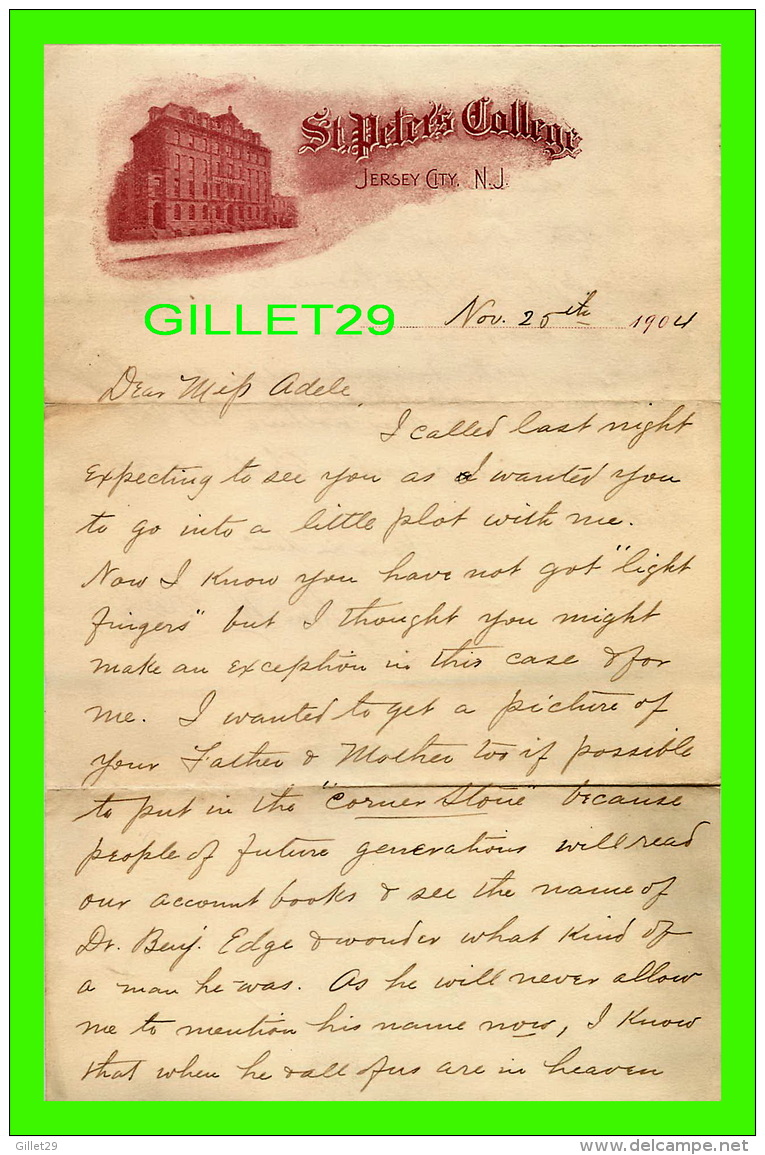 St. Peter's College
JERSEY CITY, N.J.
GILLET29
Nov. 25th 1904
Dear Miss Adele,
I called last night
Expecting to see you as I wanted you
to go into a little plot with me.
Now I know you have not got "light
fingers" but I thought you might
make an exception in this case & for
me. I wanted to get a picture of
your Father & Mother too if possible
to put in the "corner stone" because
people of future generations will read
our account books & see the name of
Dr. Benj. Edge & wonder what kind of
a man he was. As he will never allow
me to mention his name now, I know
that when he & all of us are in heaven
Gillet29
www.delcampe.net